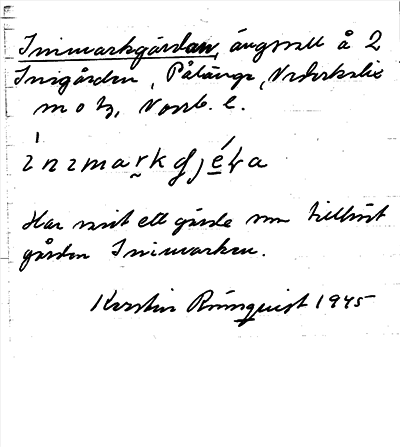 Inimarkgärdan, ängsvall å 2
Inigården, Pålänge, Nederkalix
sn o tg, Norrb. l.
ɪnɪmarkɡjæ̣ɽa
Har varit ett gärde som tillhört
gården Inimarken.
Kerstin Rönnquist 1945